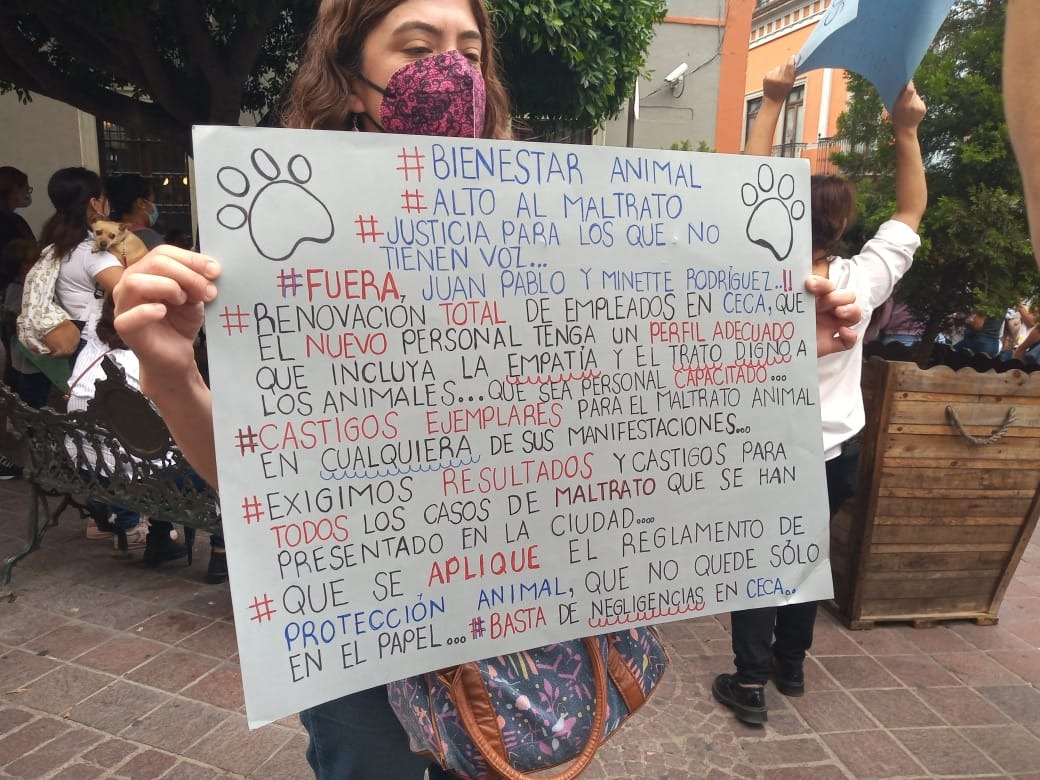 #BIENESTAR ANIMAL
#ALTO AL MALTRATO
#JUSTICIA PARA LOS QUE NO
TIENEN VOZ...
#FUERA, JUAN PABLO Y MINETTE RODRÍGUEZ..!!
#RENOVACIÓN TOTAL DE EMPLEADOS EN CECA, QUE
EL NUEVO PERSONAL TENGA UN PERFIL ADECUADO
QUE INCLUYA LA EMPATÍA Y EL TRATO DIGNO A
LOS ANIMALES...QUE SEA PERSONAL CAPACITADO...
#CASTIGOS EJEMPLARES PARA EL MALTRATO ANIMAL
EN CUALQUIERA DE SUS MANIFESTACIONES...
#EXIGIMOS RESULTADOS Y CASTIGOS PARA
TODOS LOS CASOS DE MALTRATO QUE SE HAN
PRESENTADO EN LA CIUDAD....
#QUE SE APLIQUE EL REGLAMENTO DE
PROTECCIÓN ANIMAL, QUE NO QUEDE SÓLO
EN EL PAPEL...#BASTA DE NEGLIGENCIAS EN CECA..